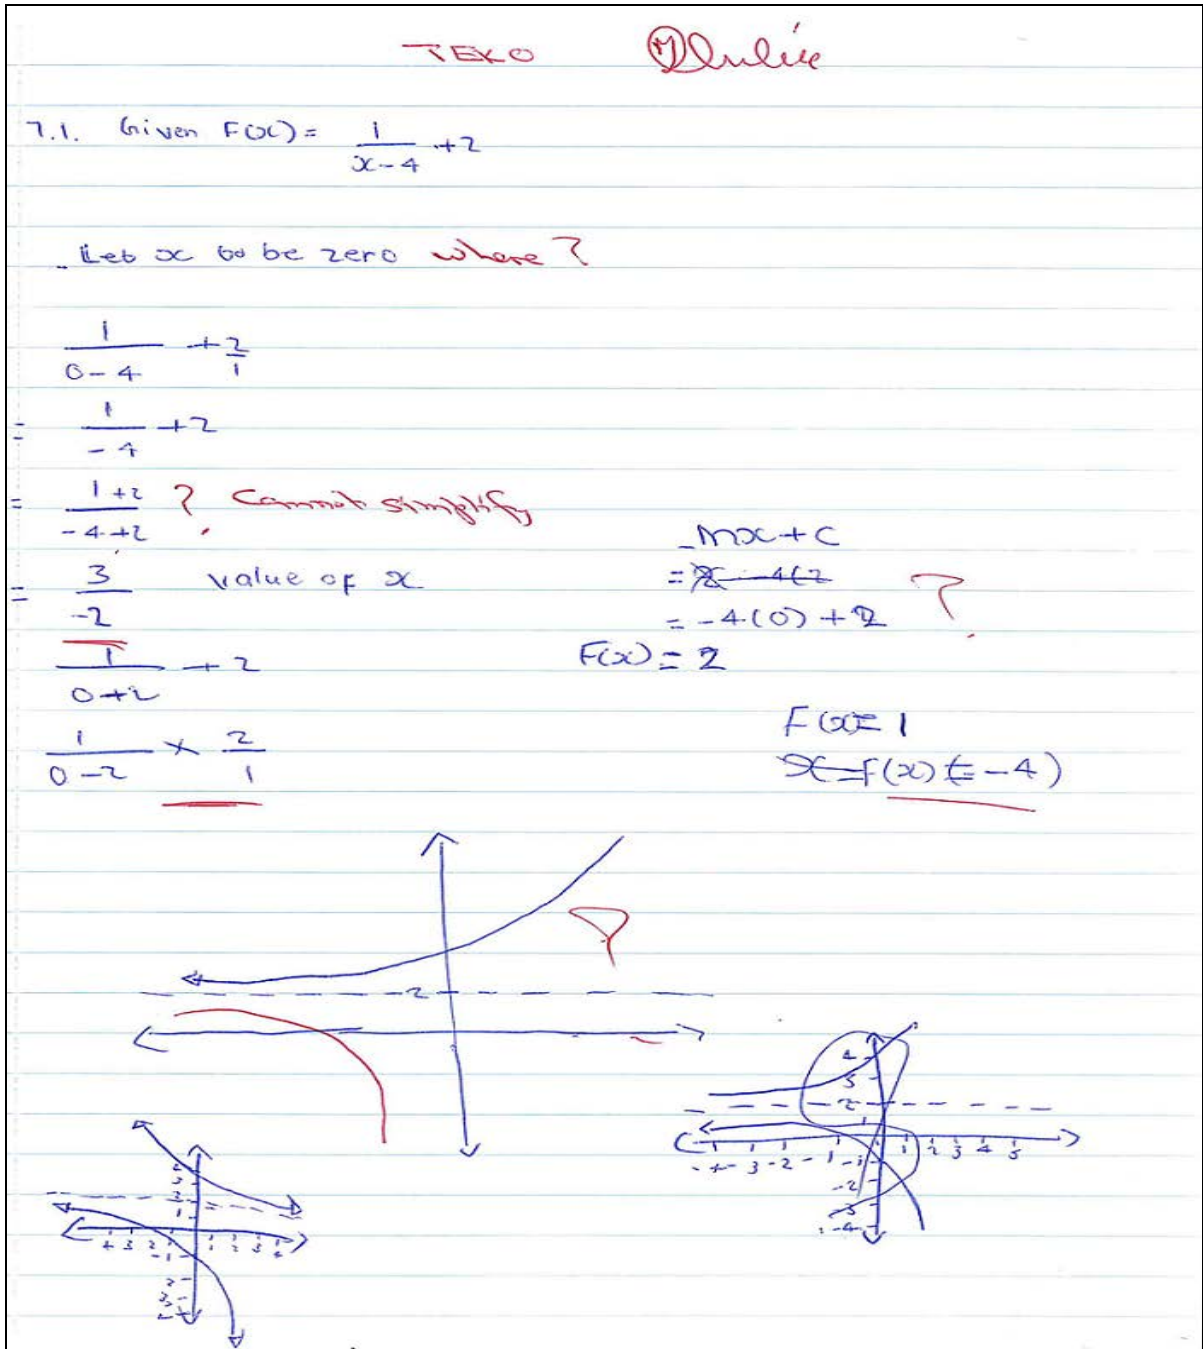 TEKO
7.1. Given F(x) = 1/(x-4) + 2
Let x to be zero where?
1/(0-4) + 2/1
= 1/(-4) + 2
= (1+2)/(-4+2) ? Cannot simplify
= 3/(-2) value of x
1/(0+2) + 2
1/(0-2) × 2/1
mx + c
= -4(0) + 2 ?
F(x) = 2
F(x) = 1
x = f(x) (= -4)
?
-2
4
3
2
1
-4 -3 -2 -1 1 2 3 4 5
-1
-2
-3
-4
4 3 2 1 1 2 3 4